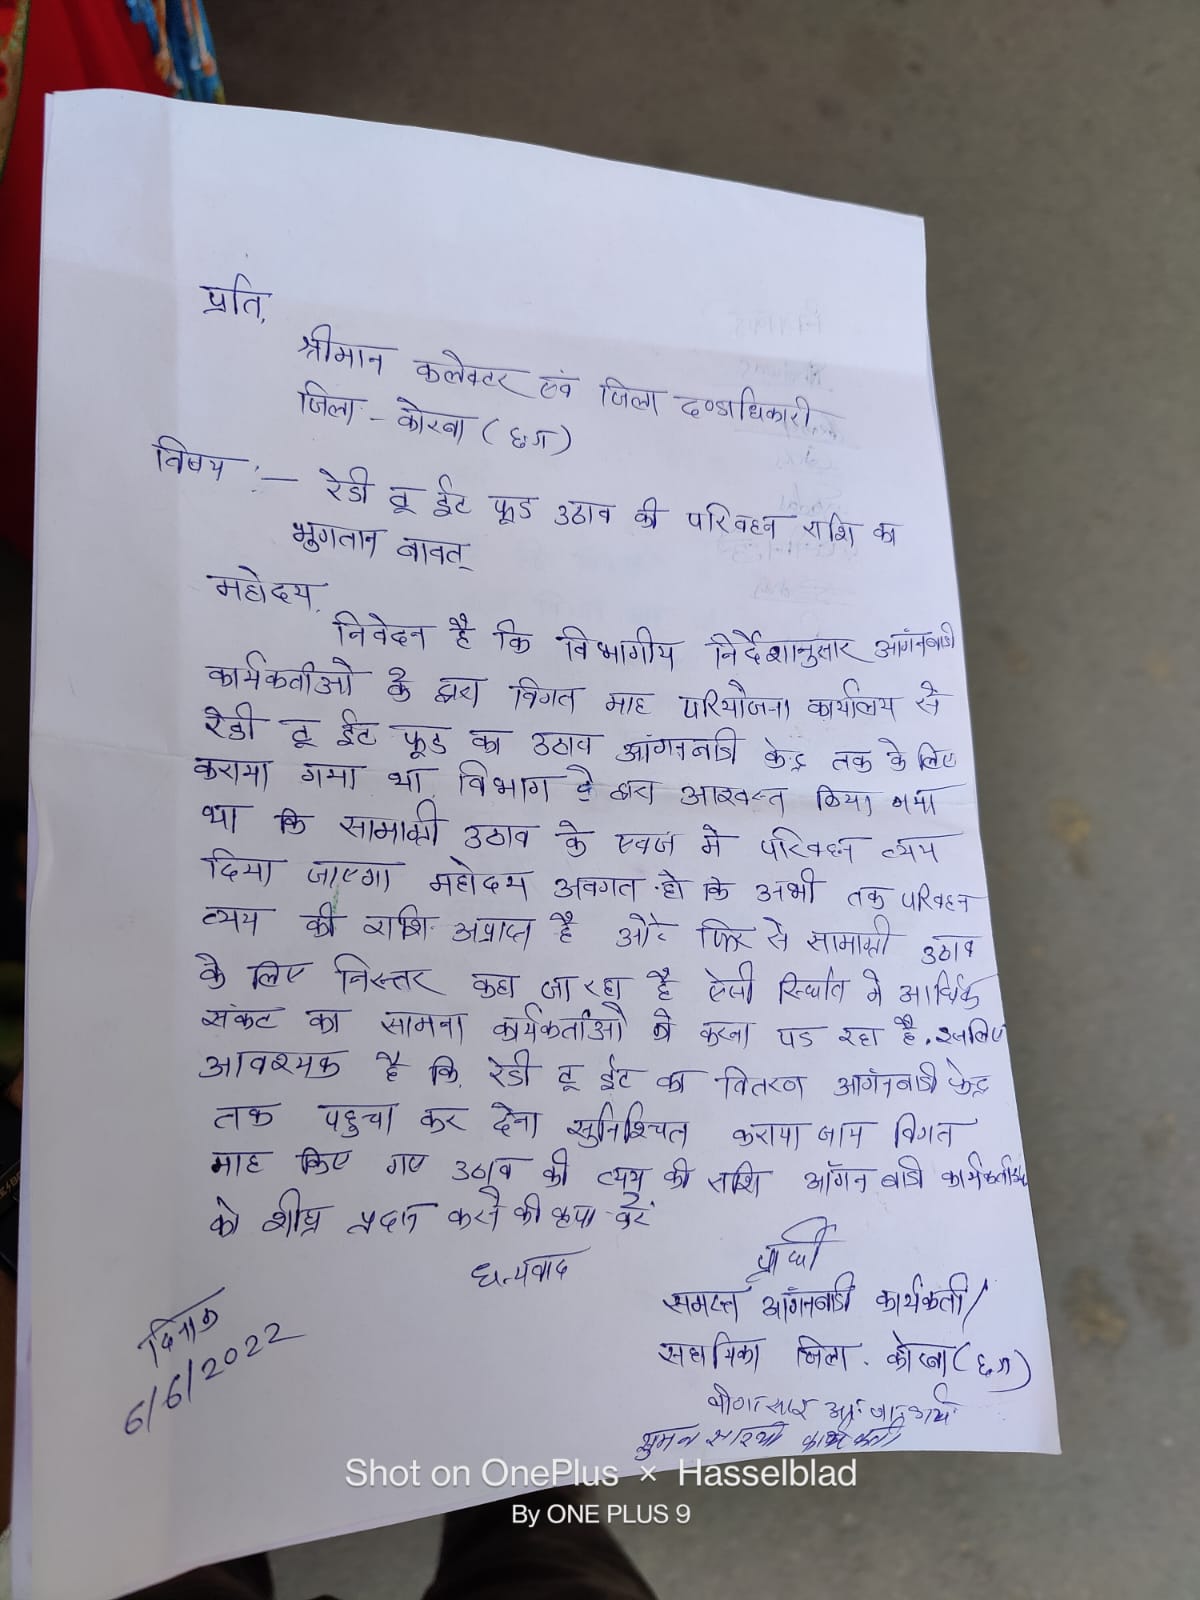 प्रति,
श्रीमान कलेक्टर एवं जिला दण्डाधिकारी
जिला - कोरबा (छग)
विषय :- रेडी टू ईट फूड उठाव की परिवहन राशि का
भुगतान बावत्
महोदय,
निवेदन है कि विभागीय निर्देशानुसार आगॅनबाडी
कार्यकर्ताओ के द्वारा विगत माह परियोजना कार्यालय से
रेडी टू ईट फूड का उठाव आंगनबाडी केन्द्र तक के लिए
कराया गया था, विभाग के द्वारा आश्वस्त किया गया
था कि सामाग्री उठाव के एवज मे परिवहन व्यय
दिया जाएगा महोदय अवगत हो कि अभी तक परिवहन
व्यय की राशि अप्राप्त है और फिर से सामाग्री उठाव
के लिए निरन्तर कहा जा रहा है ऐसी स्थिति मे आर्थिक
संकट का सामना कार्यकर्ताओ को करना पड रहा है. इसलिए
आवश्यक है कि, रेडी टू ईट का वितरण आगॅनबाडी केन्द्र
तक पहुचा कर देना सुनिश्चित कराया जाय विगत
माह किए गए उठाव की व्यय की राशि आॅगनबाडी कार्यकर्ताओ
को शीघ्र प्रदान करने की कृपा करें
धन्यवाद
प्रार्थी
समस्त आॅगनबाडी कार्यकर्ता/
सहायिका जिला - कोरबा (छग)
सुमन सारथी कार्यकर्ता
दिनांक
6/6/2022
Shot on OnePlus × Hasselblad
By ONE PLUS 9